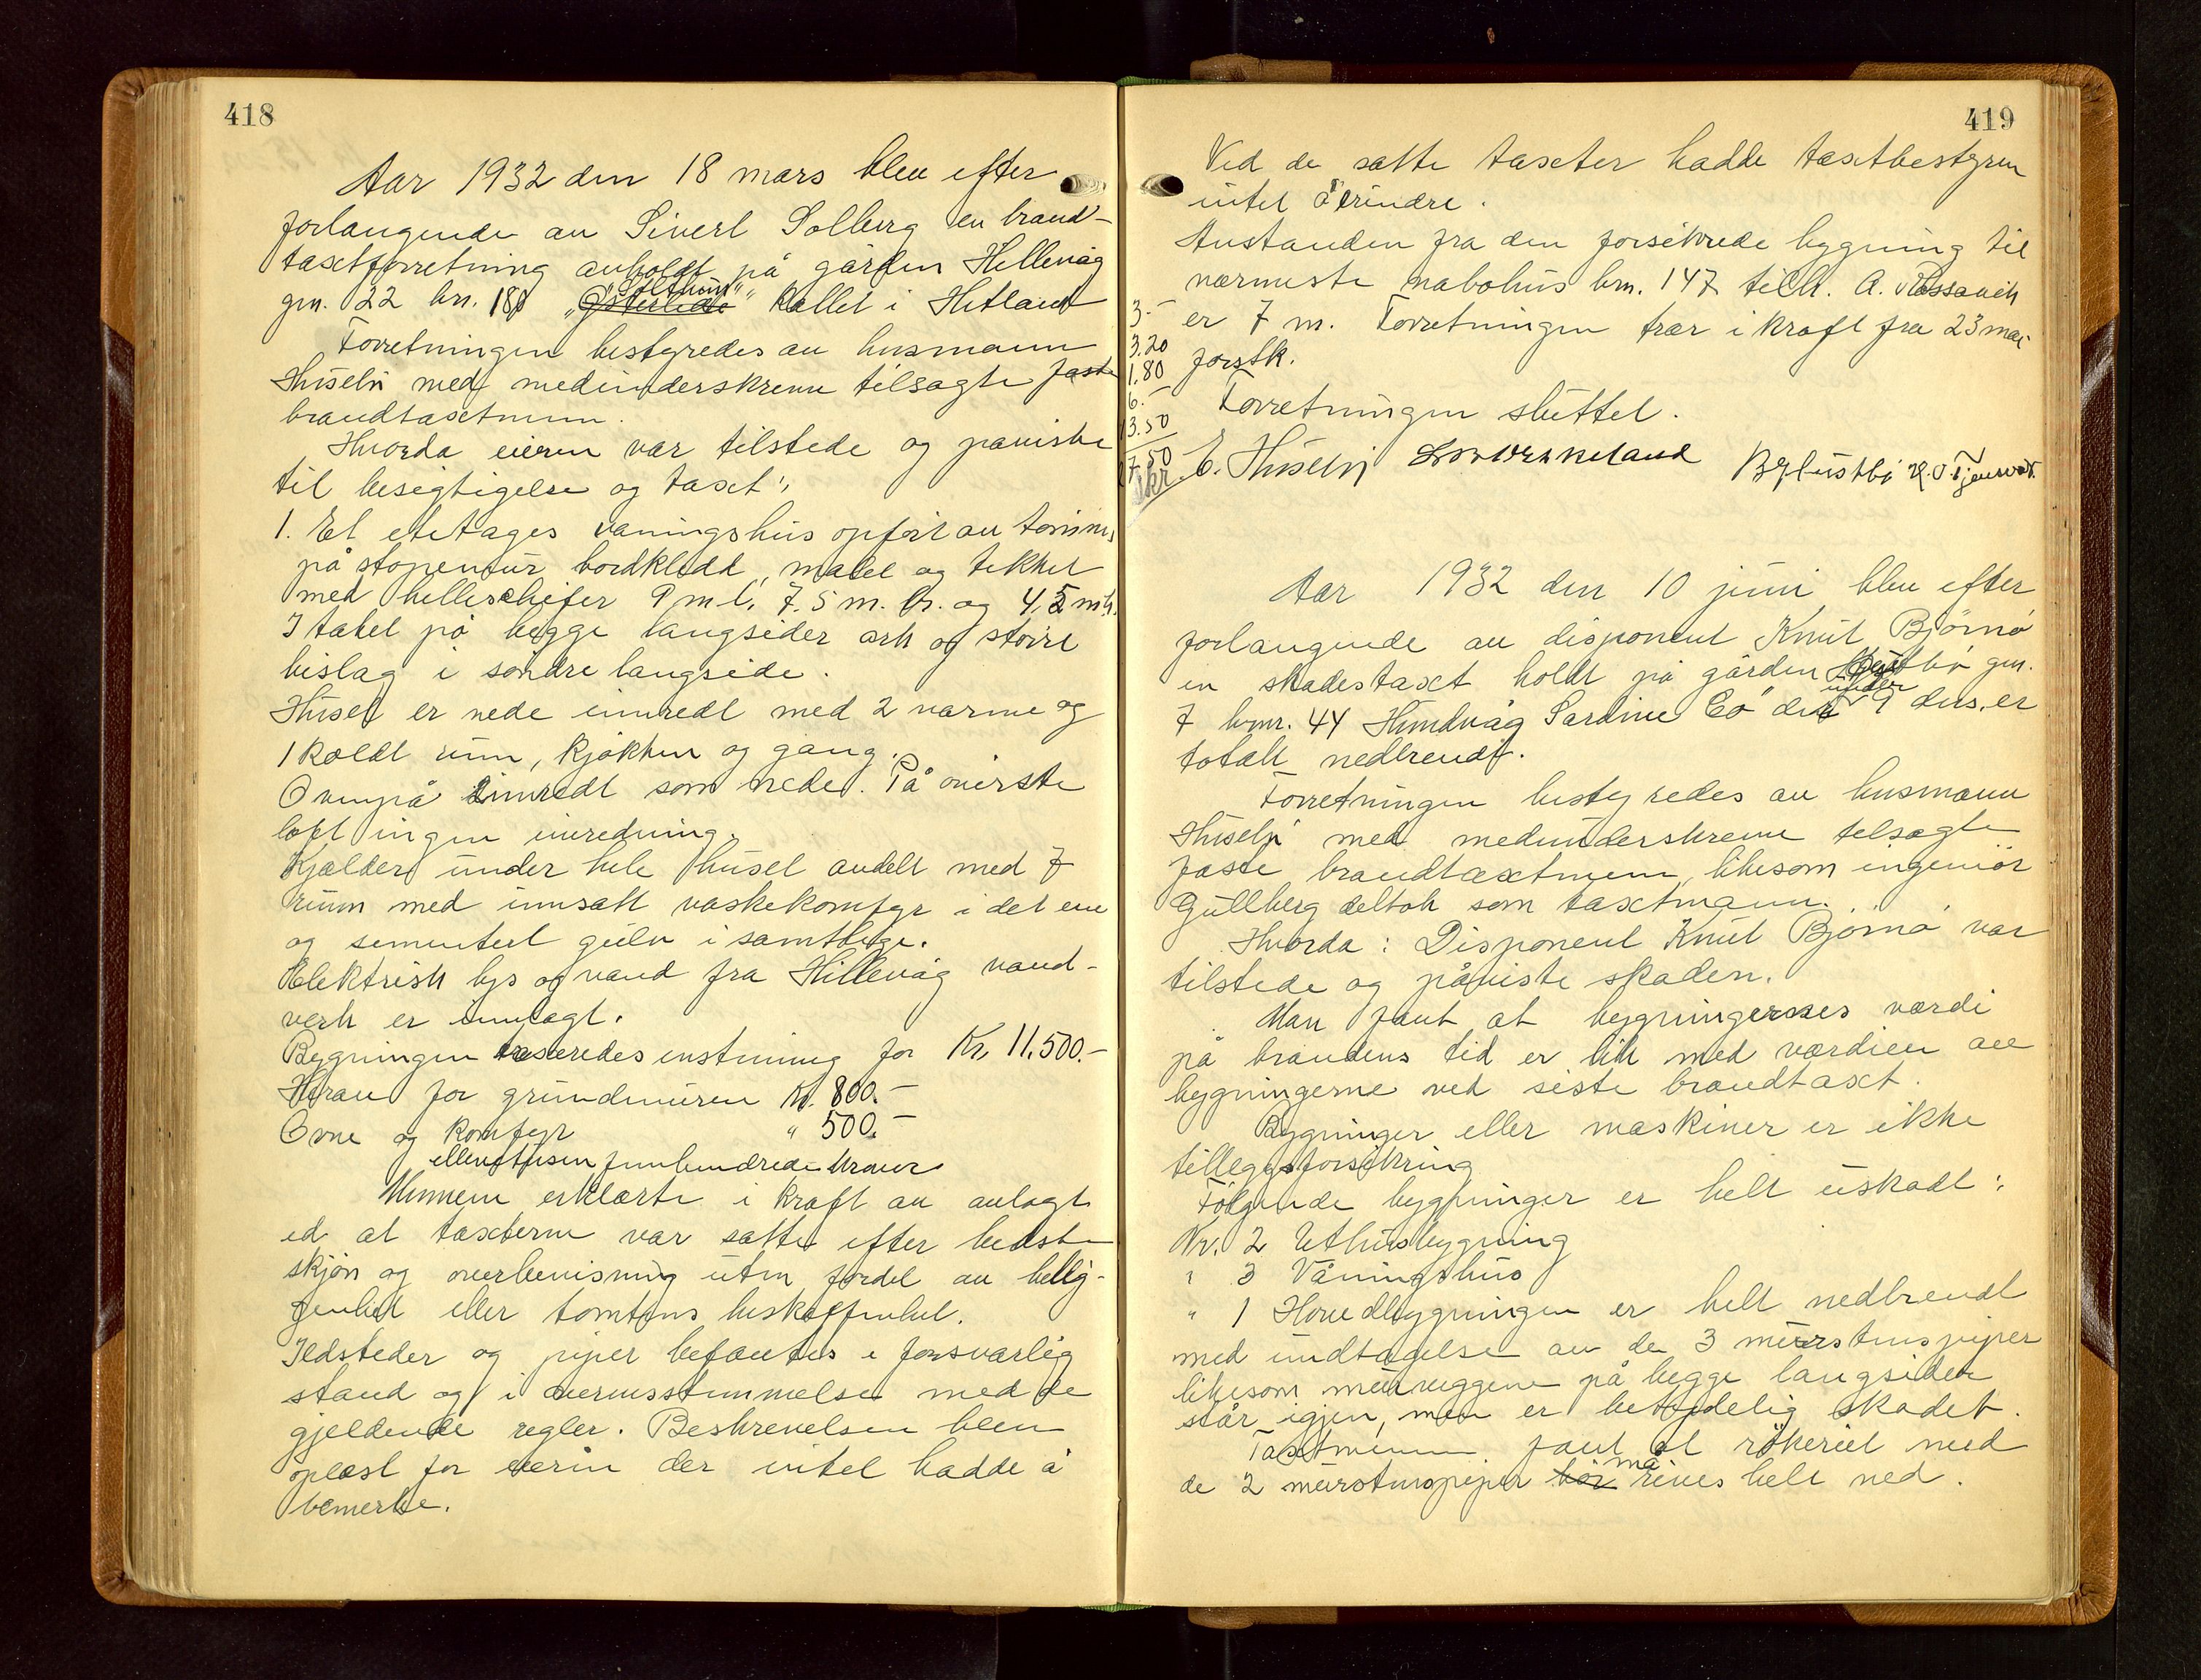 418
Aar 1932 den 18 mars blev efter
forlangende av Sivert Solberg en brand-
taxtforretning avholdt på gården Hillevåg
"Solthun"
gn. 22 bn. 180 "Østerlide" kallet i Hetland
Forretningen bestyredes av husmann
Huseby med medunderskrevne tilsagte faste
brandtaxtmenn.
Hvorda eieren var tilstede og paaviste
til besigtigelse og taxt:
1. Et etetages vaningshus opført av tømmer
på støpemur bordkledd, malet og tekket
med helleschifer 9 m l. 7.5 m. br. og 4,5 m h.
I taket på begge langsider ark og større
bislag i søndre langside.
Huset er nede innredt med 2 varme og
1 koldt rum, kjøkken og gang.
Ovenpå innredt som nede. På øverste
loft ingen inredning.
Kjælder under hele huset avdelt med 7
rum med innsatt vaskekomfyr i det ene
og sementert gulv i samtlige.
Elektrisk lys og vand fra Hillevåg vand-
verk er innlagt.
Bygningen taxeredes enstemmig for Kr. 11.500.-
Herav for grundmuren Kr. 800.-
Ovne og komfyr " 500.-
ellevetusen femhundrede kroner
Mennene erklærte i kraft av avlagt
ed at taxterne var satte efter bedste
skjøn og overbevisning uten fordel av belig-
genhet eller tomtens beskaffenhet.
Ildsteder og piper befantes i forsvarlig
stand og i overensstemmelse med de
gjeldende regler. Beskrevelsen blev
oplæst for eieren der intet hadde å
bemerke.
419
Ved de satte taxter hadde taxtbestyren
intet å erindre.
Avstanden fra den forsikrede bygning til
nærmeste nabohus brn. 147 tilh. A.
3.- er 7 m. Forretningen trær i kraft fra 23 mai
3.20
1.80 førstk.
6.-
13.50 Forretningen sluttet.
27.50
Kr. E. Huseby
Aar 1932 den 10 juni blev efter
forlangende av disponent Knut Bjørnø
en skadestaxt holdt på gården Austbø gn.
under
7 brnr. 44 Hundvåg Sardine Co der 9 ds. er
totalt nedbrendt.
Forretningen bestyredes av husmann
Huseby med medunderskrevne tilsagte
faste brandtaxtmenn, likesom ingeniør
Gullberg deltok som taxtmann.
Hvorda: Disponent Knut Bjørnø var
tilstede og påviste skaden.
Man fant at bygningernes værdi
på brandens tid er lik med værdien av
bygningerne ved siste brandtaxt.
Bygninger eller maskiner er ikke
tilleggsforsikring
Følgende bygninger er helt uskadt:
Nr. 2 Uthusbygning
" 3 Våningshus
" 1 Hovedbygningen er helt nedbrendt
med undtagelse av de 3 murstenspiper
likesom murveggene på begge langsider
står igjen, men er betydelig skadet.
Taxtmenn fant at røkeriet med
må
de 2 murstenspiper bør rives helt ned.